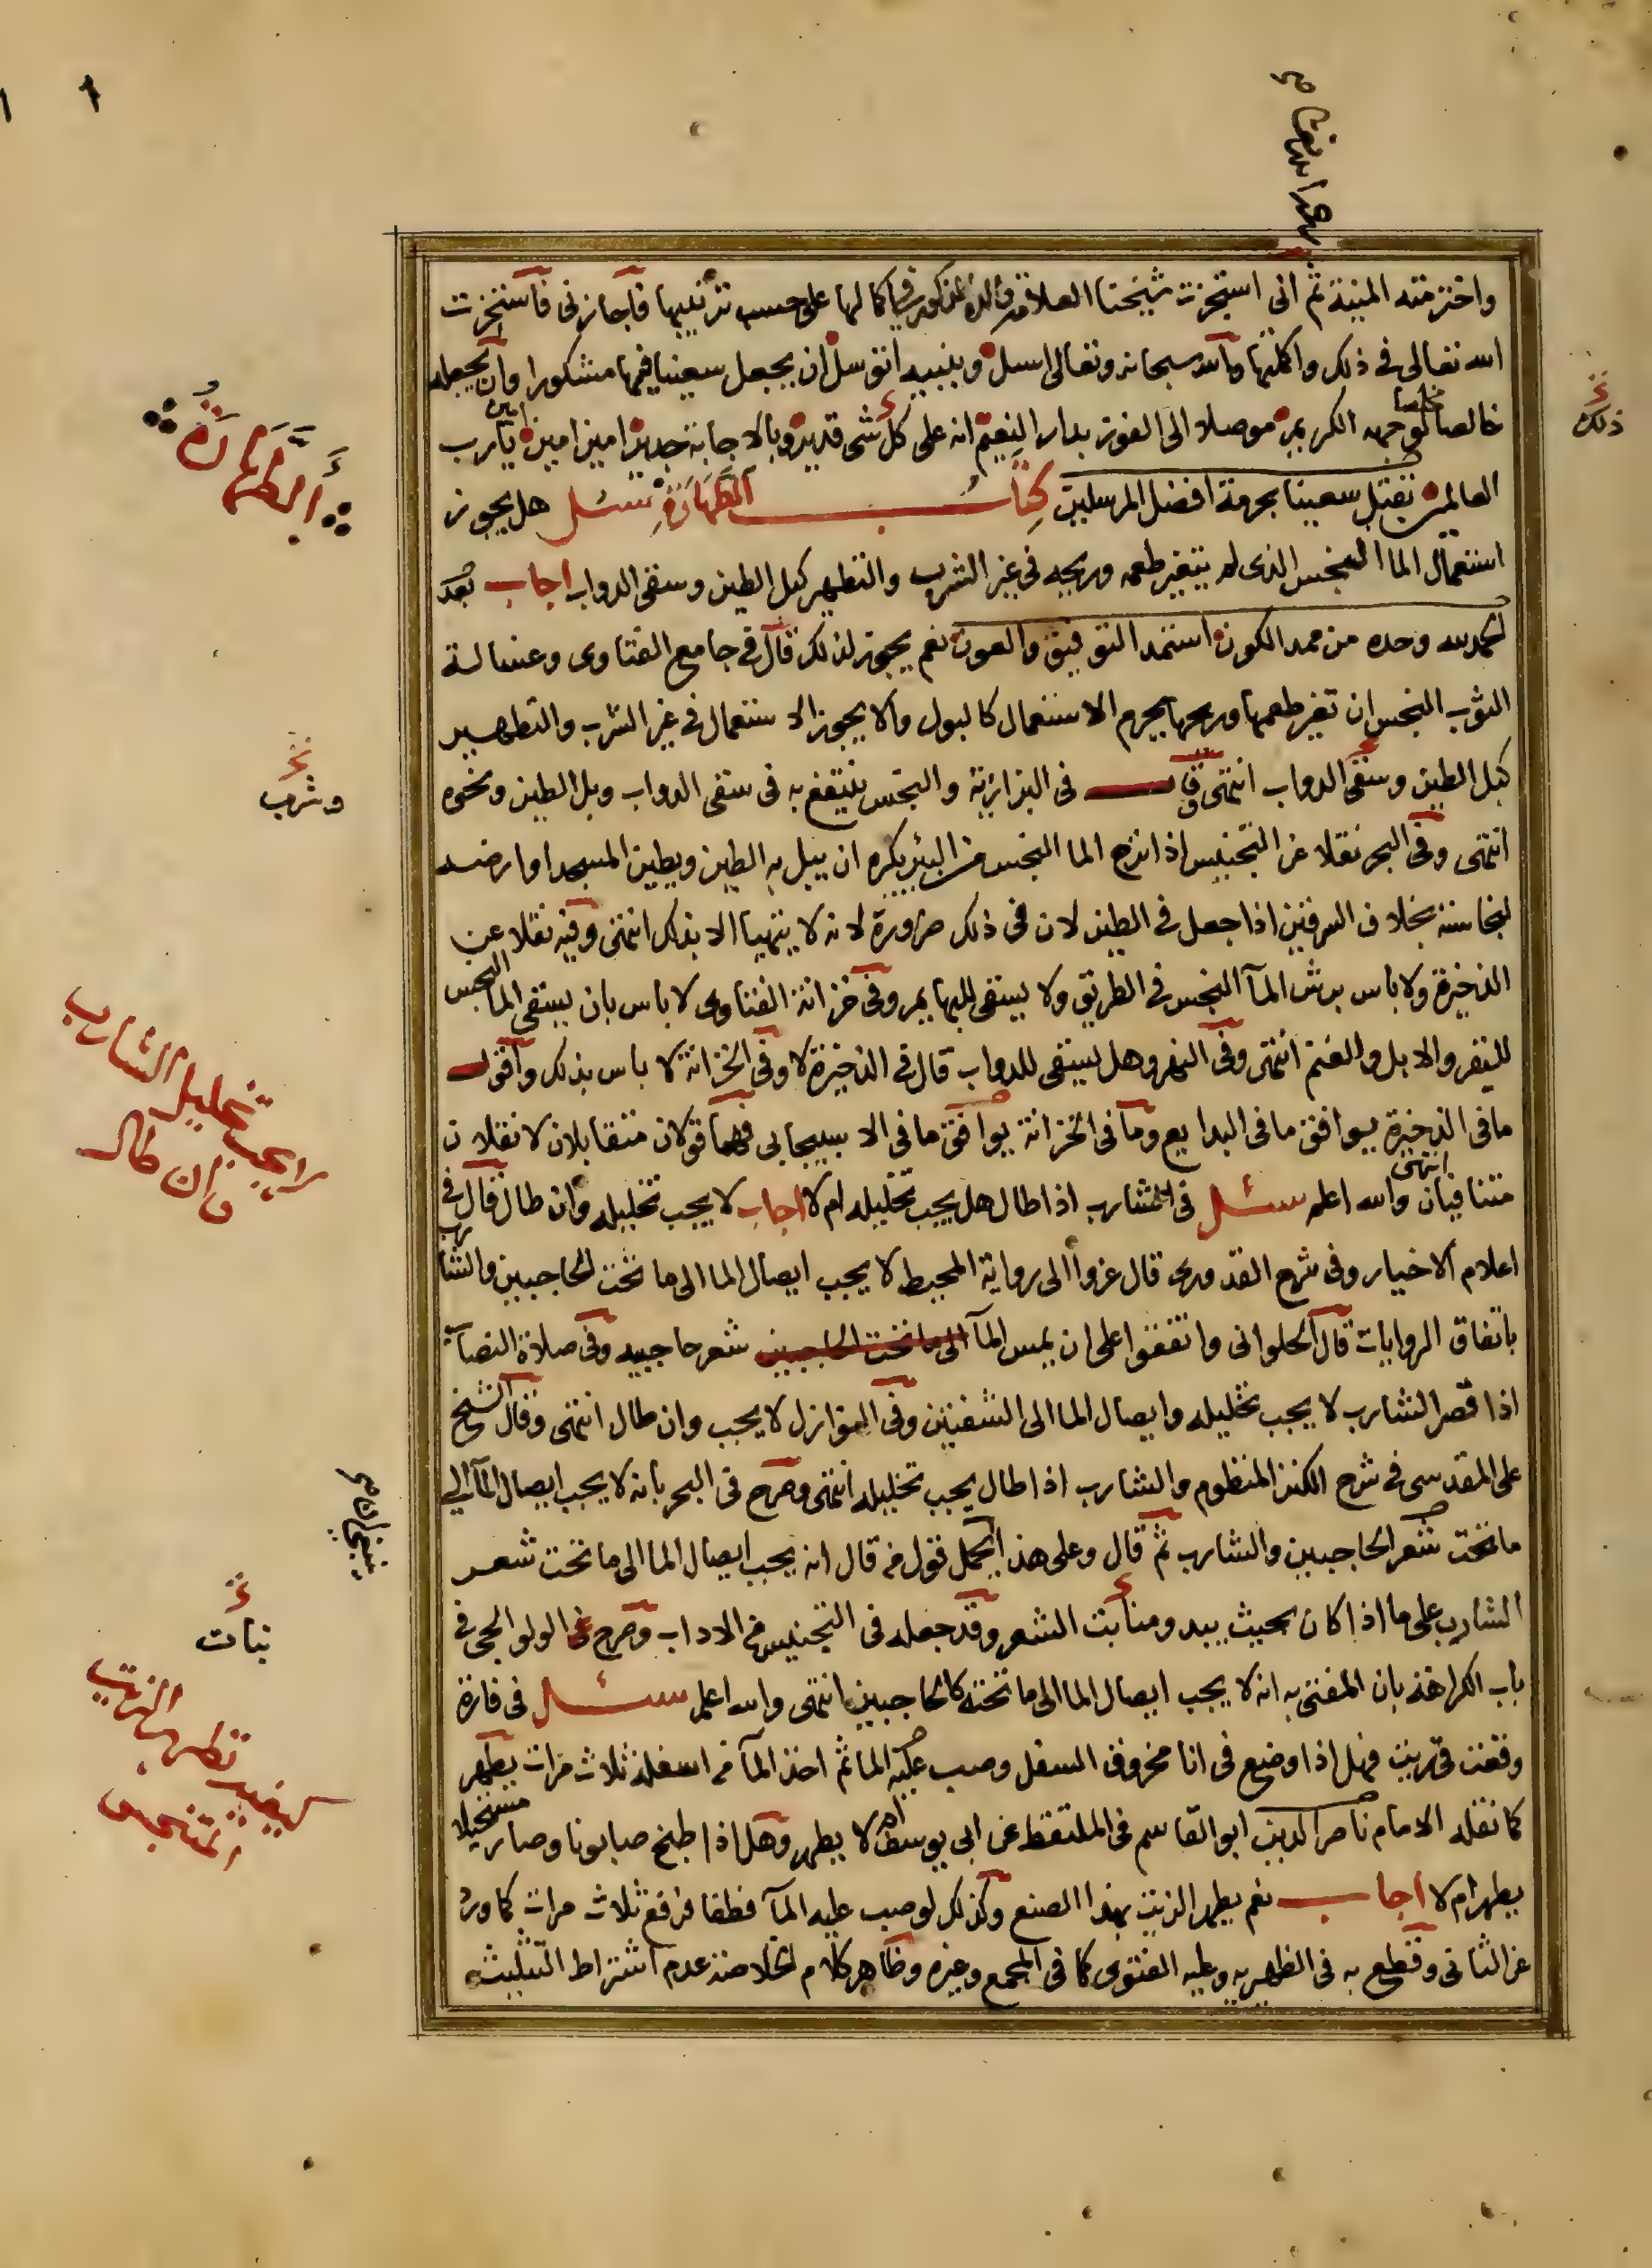 واخترمته المنية ثم انى استجزت شيخنا العلامة في اكمالها على حسب ترتيبها فاجازنى فاستخرت
الله تعالى فى ذلك واكملتها والله سبحانه وتعالى اسل وبنبيه اتوسل ان يجعل سعينا فيها مشكورا وان يجعله
خالصا لوجهه الكريم موصلا الى الفوز بدار النعيم انه على كل شى قدير وبالاجابة جدير امين امين امين يارب
العالمين تقبل سعينا بحرمة افضل المرسلين كتاب الطهارة سئل هل يجوز
استعمال الما النجس الذى لم يتغير طعمه وريحه فى غير الشرب والتطهير كبل الطين وسقى الدواب اجاب بعد
الحمد لله وحده من ممد الكون استمد التوفيق والعون نعم يجوز لذلك قال فى جامع الفتاوى وغسالة
الثوب النجس ان تغير طعمها وريحها يحرم الاستعمال كالبول والا يجوز الاستعمال فى غير الشرب والتطهير
كبل الطين وسقى الدواب انتهى وقال فى البزازية والنجس ينتفع به فى سقى الدواب وبل الطين ونحوه
انتهى وفى البحر نقلا عن التجنيس اذا نزح الما النجس من البئر يكره ان يبل به الطين ويطين المسجد او ارضه
لنجاسته بخلاف السرقين اذا جعل فى الطين لان فى ذلك ضرورة لانه لا يتهيا الا بذلك انتهى وفيه نقلا عن
الذخيرة ولا باس برش المآ النجس فى الطريق ولا يسقى للبهايم وفى خزانة الفتاوى لا باس بان يسقى المآ النجس
للبقر والابل والغنم انتهى وفى النهر وهل يسقى للدواب قال فى الذخيرة لا وفى الخزانة لا باس بذلك واقول
مافى الذخيرة يوافق مافى البدايع وما فى الخزانة يوافق مافى الاسبيجابى فهما قولان متقابلان لا نقلان
متنافيان انتهى والله اعلم سئل فى الشارب اذا طال هل يجب تخليله ام لا اجاب لا يجب تخليله وان طال قال فى
اعلام الاخيار وفى شرح القدورى قال عزوا الى رواية المحيط لا يجب ايصال الما الى ما تحت الحاجبين والشارب
باتفاق الروايات قال الحلوانى واتفقوا على ان يمس المآ الى ما تحت الحاجبين شعر حاجبيه وفى صلاة
اذا قصر الشارب لا يجب تخليله وايصال الما الى الشفتين وفى النوازل لا يجب وان طال انتهى وقال الشيخ
على المقدسى فى شرح الكنز المنظوم والشارب اذا طال يجب تخليله انتهى وصرح فى البحر بانه لا يجب ايصال المآ الي
ما تحت شعر الحاجبين والشارب ثم قال وعلى هذا يحمل قول من قال انه يجب ايصال الما الى ما تحت شعر
الشارب على ما اذا كان بحيث يبدو منابت الشعر وقد جعله فى التجنيس من الاداب وصرح الولوالجى فى
باب الكراهة بان المفتى به انه لا يجب ايصال الما الى ما تحته كالحاجبين انتهى والله اعلم سئل فى فارة
وقعت فى زيت فهل اذا وضع فى انا مخروق السفل وصب عليه الما ثم اخذ المآ من اسفله ثلاث مرات يطهر
كما نقله الامام ناصر الدين ابو القاسم فى الملتقط عن ابى يوسف ام لا يطهر وهل اذا طبخ صابونا وصار مستحيلا
يطهر ام لا اجاب نعم يطهر الزيت بهذا الصنع وكذلك لو صب عليه المآ فطفا فرفع ثلاث مرات كما ورد
عن الثانى وقطع به فى الظهيريه وعليه الفتوى كما فى المجمع وغيره وظاهر كلام الخلاصة عدم اشتراط التثليث
ذلك
الطهارة
وشرب
لا يجب تخليل الشارب
وان طال
نبات
كيفيه تطهير الزيت
المتنجس